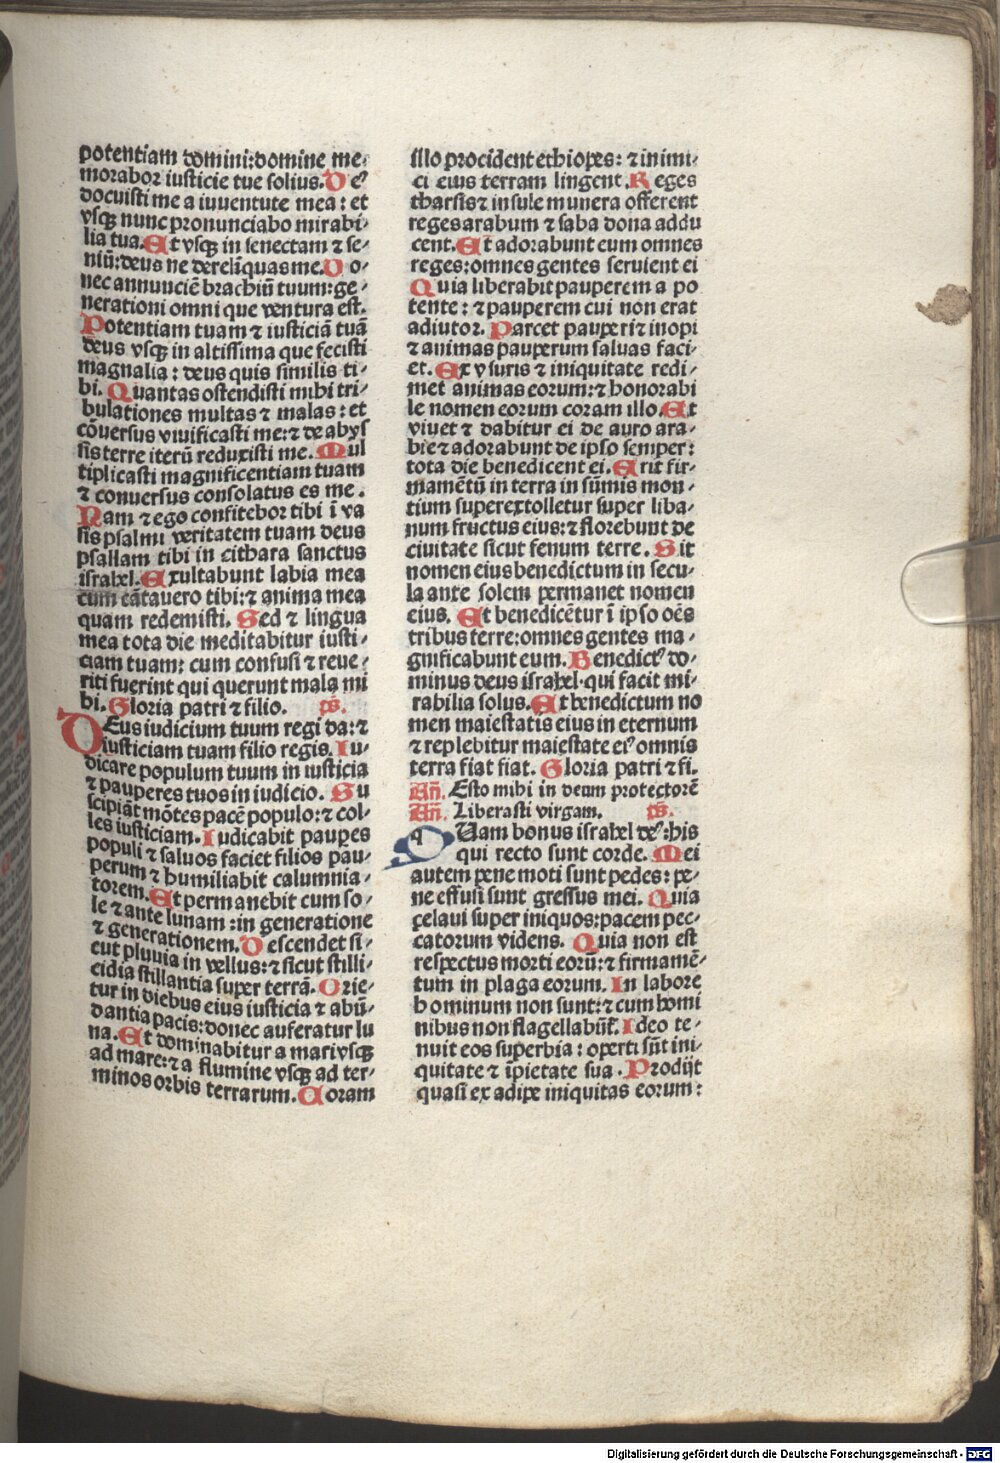 potentiam domini:domine me⸗
morabor iusticie tue solius.De⁹
docuisti me a iuuentute mea: et
vsqꝫ nunc pronunciabo mirabi⸗
lia tua.Et vsqꝫ in senectam ⁊ se⸗
niū:deus ne derelīquas me.Do⸗
nec annunciē brachiū tuum:ge⸗
nerationi omni que ventura est.
Potentiam tuam ⁊ iusticiā tuā
deus vsqꝫ in altissima que fecisti
magnalia: deus quis similis ti⸗
bi. Quantas ostendisti mihi tri⸗
bulationes multas ⁊ malas: et
cōuersus viuificasti me:⁊ de abys
sis terre iterū reduxisti me. Mul
tiplicasti magnificentiam tuam
⁊ conuersus consolatus es me.
Nam ⁊ ego confitebor tibi ī va
sis psalmi veritatem tuam deus
psallam tibi in cithara sanctus
israhel.Exultabunt labia mea
cum cātauero tibi:⁊ anima mea
quam redemisti. Sed ⁊ lingua
mea tota die meditabitur iusti⸗
ciam tuam: cum confusi ⁊ reue⸗
riti fuerint qui querunt mala mi
bi. Gloria patri ⁊ filio. ps.
DEus iudicium tuum regi da:⁊
iusticiam tuam filio regis. Iu⸗
dicare populum tuum in iusticia
⁊ pauperes tuos in iudicio. Su
scipiāt mōtes pacē populo:⁊ col⸗
les iusticiam. Iudicabit pauꝑes
populi ⁊ saluos faciet filios pau⸗
perum ⁊ humiliabit calumnia⸗
torem.Et permanebit cum so⸗
le ⁊ ante lunam:in generatione
⁊ generationem. Descendet si⸗
cut pluuia in vellus:⁊ sicut stilli⸗
cidia stillantia super terrā. Orie⸗
tur in diebus eius iusticia ⁊ abū⸗
dantia pacis:donec auferatur lu
na.Et dominabitur a mari vsqꝫ
ad mare:⁊ a flumine vsqꝫ ad ter⸗
minos orbis terrarum.Coram
illo procident ethiopes: ⁊ inimi⸗
ci eius terram lingent.Reges
tharsis ⁊ insule munera offerent
reges arabum ⁊ saba dona addu
cent.Et adorabunt eum omnes
reges:omnes gentes seruient ei
Quia liberabit pauperem a po
tente: ⁊ pauperem cui non erat
adiutor. Parcet pauperi ⁊ inopi
⁊ animas pauperum saluas faci⸗
et. Ex vsuris ⁊ iniquitate redi⸗
met animas eorum:⁊ honorabi
le nomen eorum coram illo.Et
viuet ⁊ dabitur ei de auro ara⸗
bie ⁊ adorabunt de ipso semper:
tota die benedicent ei. Erit fir⸗
mamētū in terra in sūmis mon⸗
tium superextolletur super liba⸗
num fructus eius:⁊ florebunt de
ciuitate sicut fenum terre. Sit
nomen eius benedictum in secu⸗
la ante solem permanet nomen
eius. Et benedicētur ī ipso oēs
tribus terre:omnes gentes ma⸗
gnificabunt eum. Benedict⁹ do⸗
minus deus israhel·qui facit mi⸗
rabilia solus.Et benedictum no
men maiestatis eius in eternum
⁊ replebitur maiestate ei⁹ omnis
terra fiat fiat. Gloria patri ⁊ fi.
An̄. Esto mihi in deum protectorē
An̄. Liberasti virgam. ps.
qUam bonus israhel de⁹:his
qui recto sunt corde. Mei
autem pene moti sunt pedes: pe⸗
ne effusi sunt gressus mei. Quia
çelaui super iniquos:pacem pec⸗
catorum videns. Quia non est
respectus morti eorū:⁊ firmamē⸗
tum in plaga eorum. In labore
hominum non sunt:⁊ cum homi
nibus non flagellabūt̄. Ideo te⸗
nuit eos superbia: operti sūt ini⸗
quitate ⁊ īpietate sua. Prodijt
quasi ex adipe iniquitas eorum:
Digitalisierung gefördert durch die Deutsche Forschungsgemeinschaft - DFG